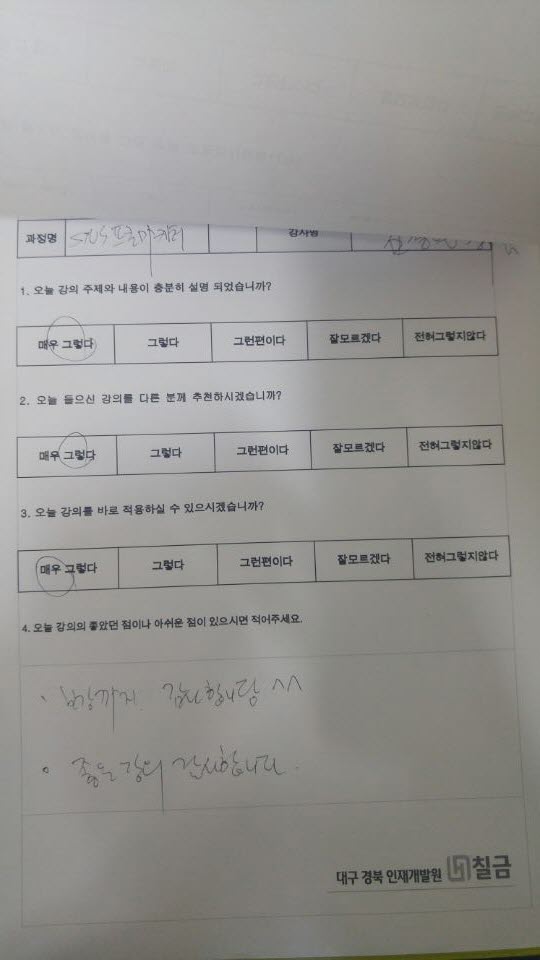 과정명 SNS 강사명
1. 오늘 강의 주제와 내용이 충분히 설명 되었습니까?
매우 그렇다 그렇다 그런편이다 잘모르겠다 전혀그렇지않다
2. 오늘 들으신 강의를 다른 분께 추천하시겠습니까?
매우 그렇다 그렇다 그런편이다 잘모르겠다 전혀그렇지않다
3. 오늘 강의를 바로 적용하실 수 있으시겠습니까?
매우 그렇다 그렇다 그런편이다 잘모르겠다 전혀그렇지않다
4. 오늘 강의의 좋았던 점이나 아쉬운 점이 있으시면 적어주세요.
감사합니당 ^^
좋은 강의 감사합니다.
대구 경북 인재개발원 칠금